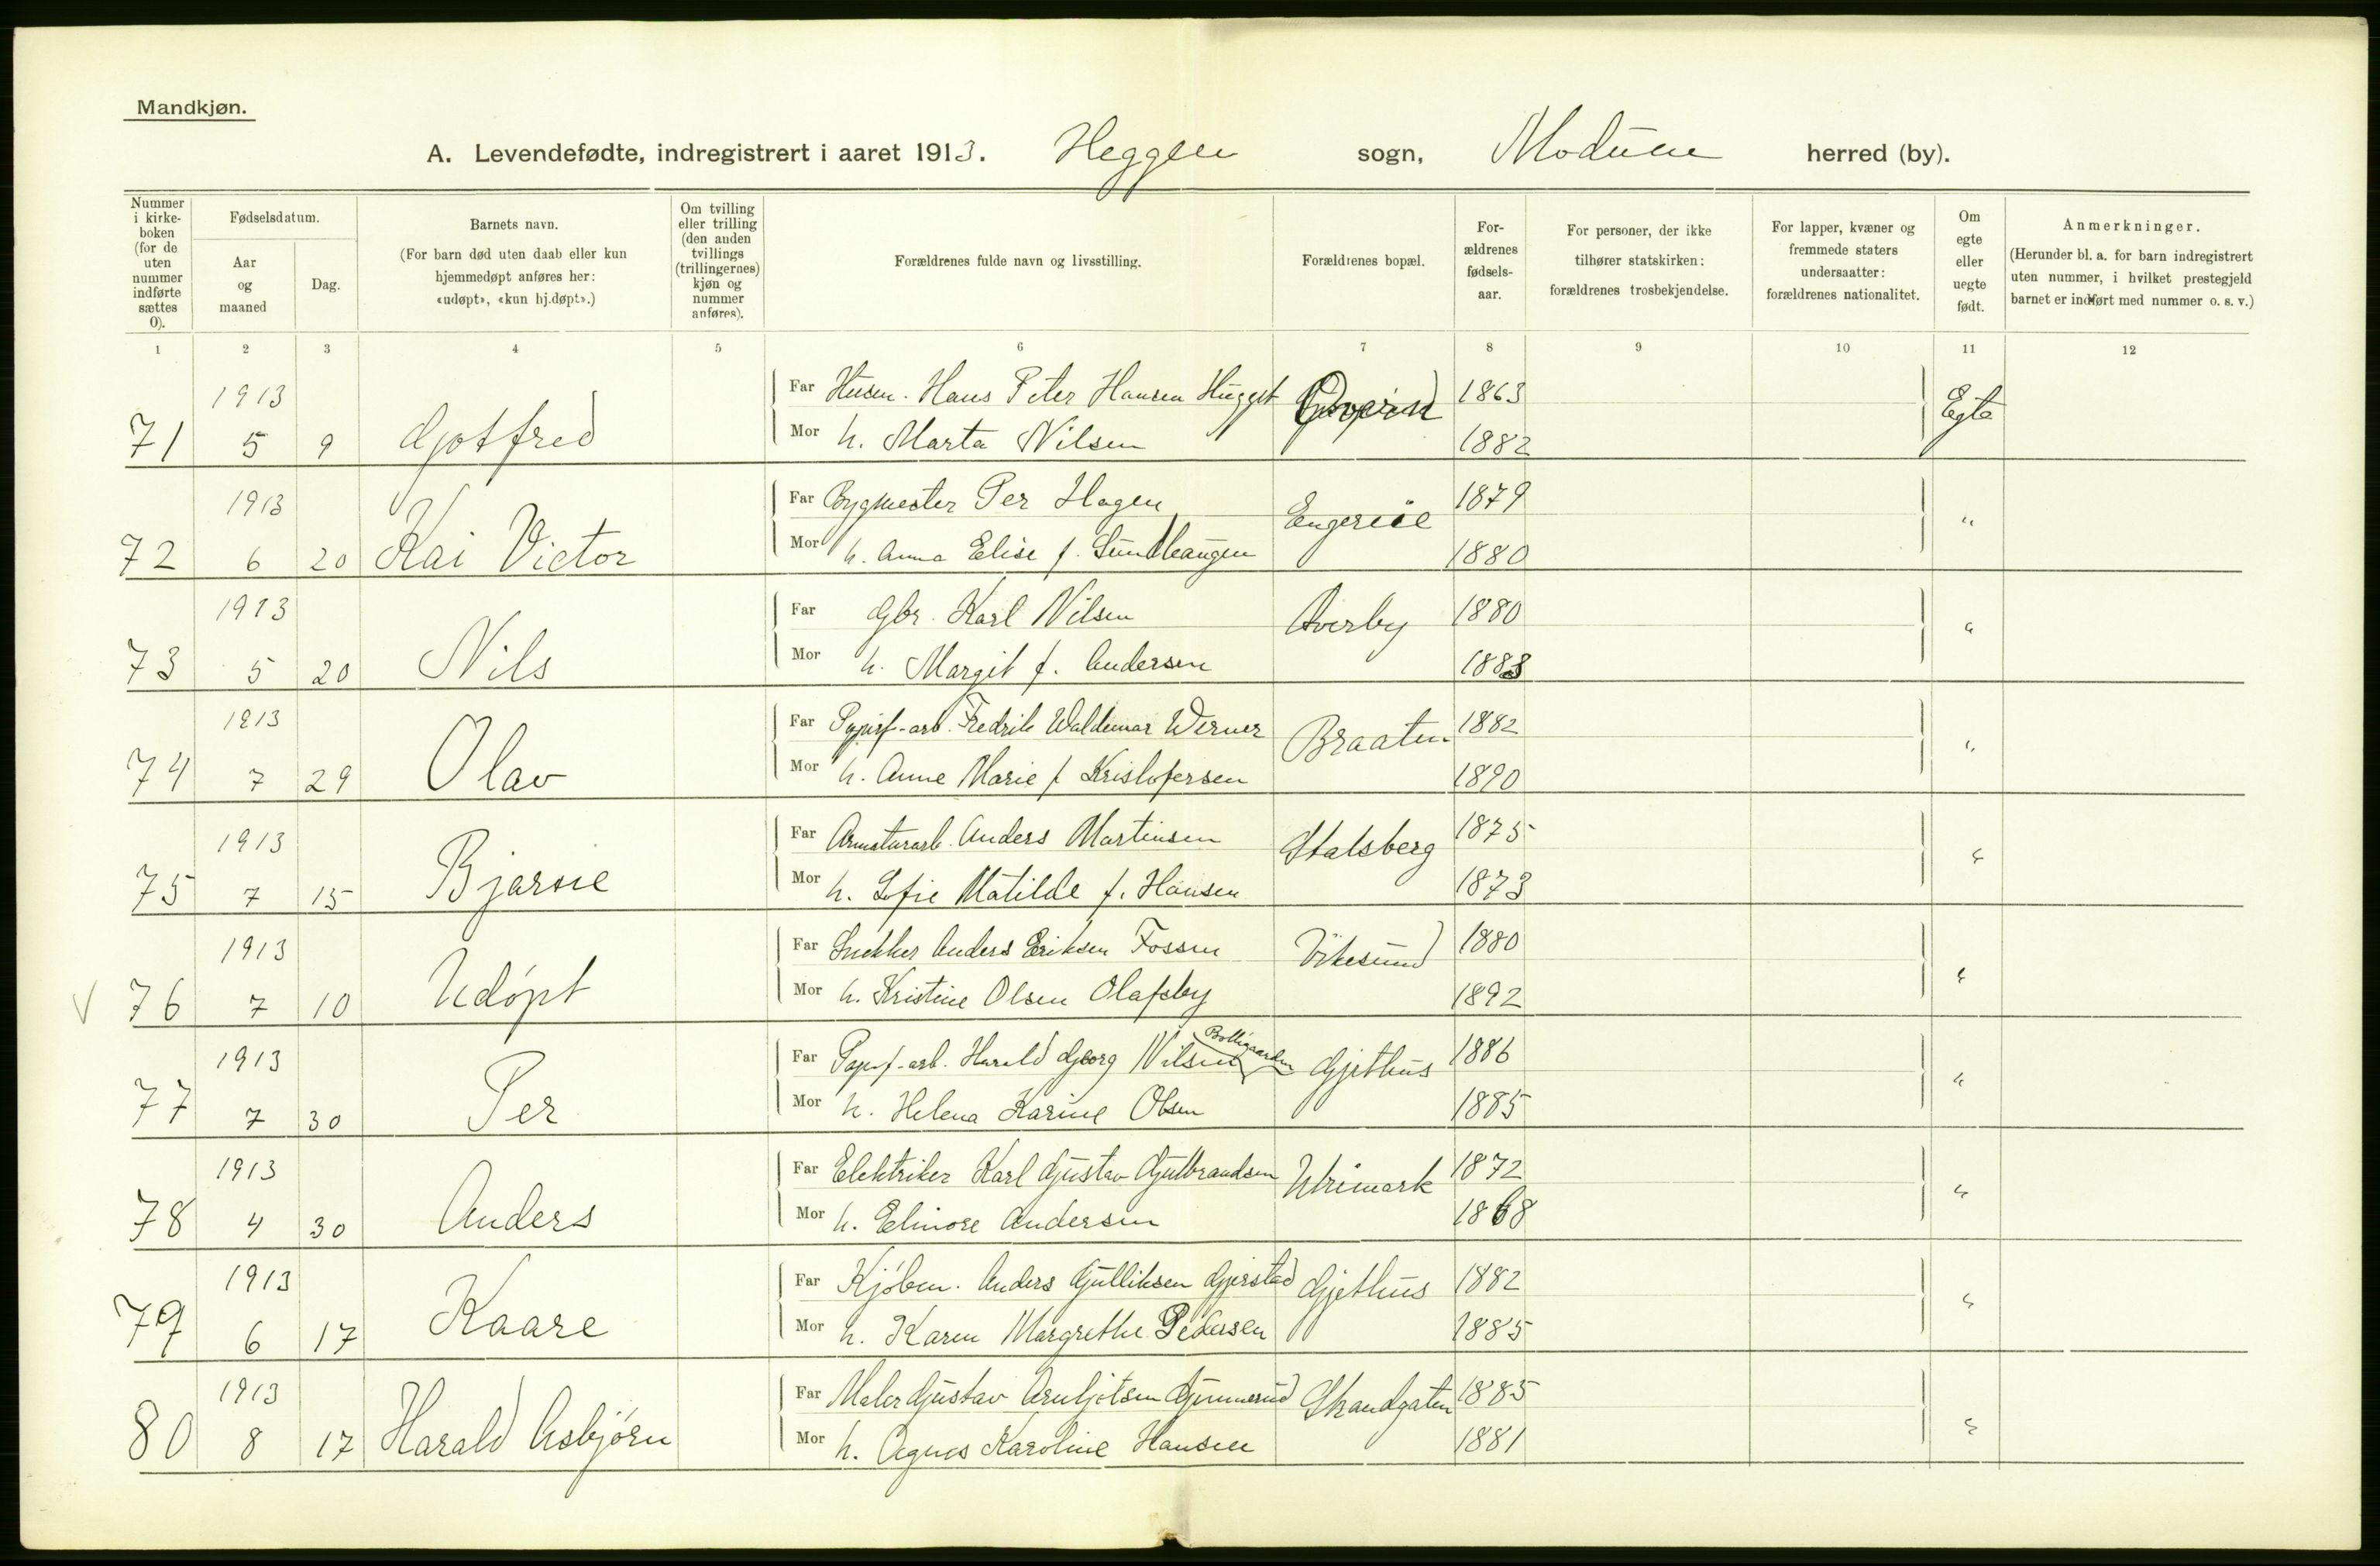 Mandkjøn.
A. Levendefødte, indregistrert i aaret 1913. Heggen sogn, Modum herred (by).
Nummer i kirke-boken (for de uten nummer indførte sættes 0).
Fødselsdatum.
Aar og maaned
Dag.
Barnets navn.
(For barn død uten daab eller kun hjemmedøpt anføres her: «udøpt», «kun hj.døpt».)
Om tvilling eller trilling (den anden tvillings (trillingernes) kjøn og nummer anføres).
Forældrenes fulde navn og livsstilling.
Forældrenes bopæl.
For-ældrenes fødsels-aar.
For personer, der ikke tilhører statskirken: forældrenes trosbekjendelse.
For lapper, kvæner og fremmede staters undersaatter: forældrenes nationalitet.
Om egte eller uegte født.
Anmerkninger.
(Herunder bl. a. for barn indregistrert uten nummer, i hvilket prestegjeld barnet er indført med nummer o. s. v.)
1 2 3 4 5 6 7 8 9 10 11 12
1913 Far Husm. Hans Peter Hansen 1863
71 5 9 Gotfred Mor h. Marta Nilsen 1882 Egte
1913 Far Bygmester Per Hagen Engeriil 1879
72 6 20 Kai Victor Mor h. Anna Elise f. Sundhaugen 1880 "
1913 Far Gbr. Karl Nilsen Averby 1880
73 5 20 Nils Mor h. Margit f. Andersen 1883 "
1913 Far Papirf-arb. Fredrik Waldemar Werner Braaten 1882
74 7 29 Olav Mor h. Anne Marie f. Kristofersen 1890 "
1913 Far Armaturarb. Anders Martinsen Stalsberg 1875
75 7 15 Bjarne Mor h. Sofie Matilde f. Hansen 1873 "
1913 Far Snekker Anders Eriksen Fossen Vikesund 1880
V 76 7 10 Udøpt Mor h. Kristine Olsen Olafsby 1892 "
1913 Far Papirf-arb. Harald Georg Nilsen Bolliggaarden Gjethus 1886
77 7 30 Per Mor h. Helena Karine Olsen 1885 "
1913 Far Elektriker Karl Gustav Gulbrandsen 1872
78 4 30 Anders Mor h. Elinore Andersen 1868 "
1913 Far Kjøbm. Anders Gulliksen Gjerstad Gjethus 1882
79 6 17 Kaare Mor h. Karen Margrethe Pedersen 1885 "
1913 Far Maler Gustav Arnljotsen Gunnerud Strandgaten 1885
80 8 17 Harald Asbjørn Mor h. Agnes Karoline Hansen 1881 "